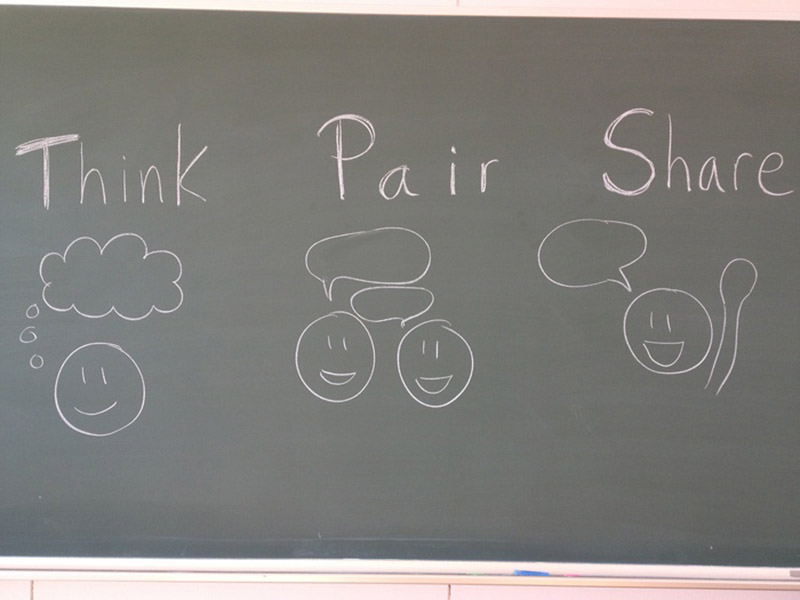 Think Pair Share